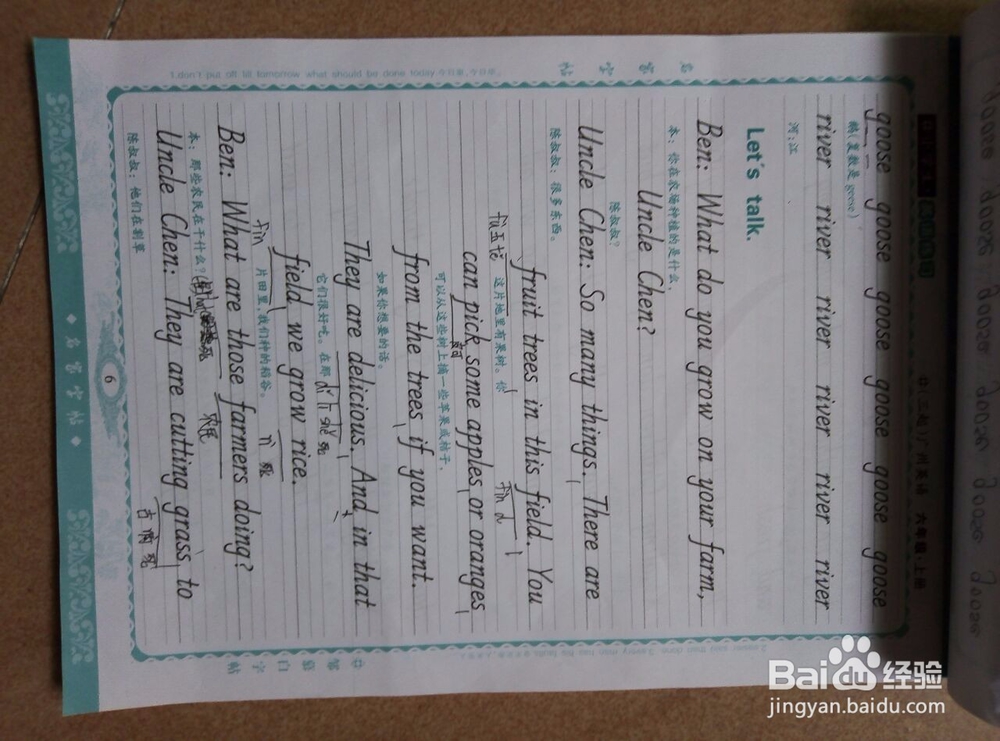 goose goose goose goose goose goose
鹅(复数是geese)
river river river river river river
河;江
Let's talk.
Ben: What do you grow on your farm,
本:你在农场种植的是什么,
Uncle Chen?
陈叔叔?
Uncle Chen: So many things. There are
陈叔叔:很多东西。
fruit trees in this field. You
这片地里有果树。你
can pick some apples or oranges
可以从这些树上摘一些苹果或桔子,
from the trees if you want.
如果你想要的话。
They are delicious. And in that
它们很好吃。在那
field we grow rice.
片田里,我们种的稻谷。
Ben: What are those farmers doing?
本:那些农民在干什么?
农民
Uncle Chen: They are cutting grass to
陈叔叔:他们在割草
1.don't put off till tomorrow what should be done today.今日事,今日毕。
名客字帖
6
名客字帖
(三起)广州英语 六年级·上册
Baidu经验
jingyan.baidu.com